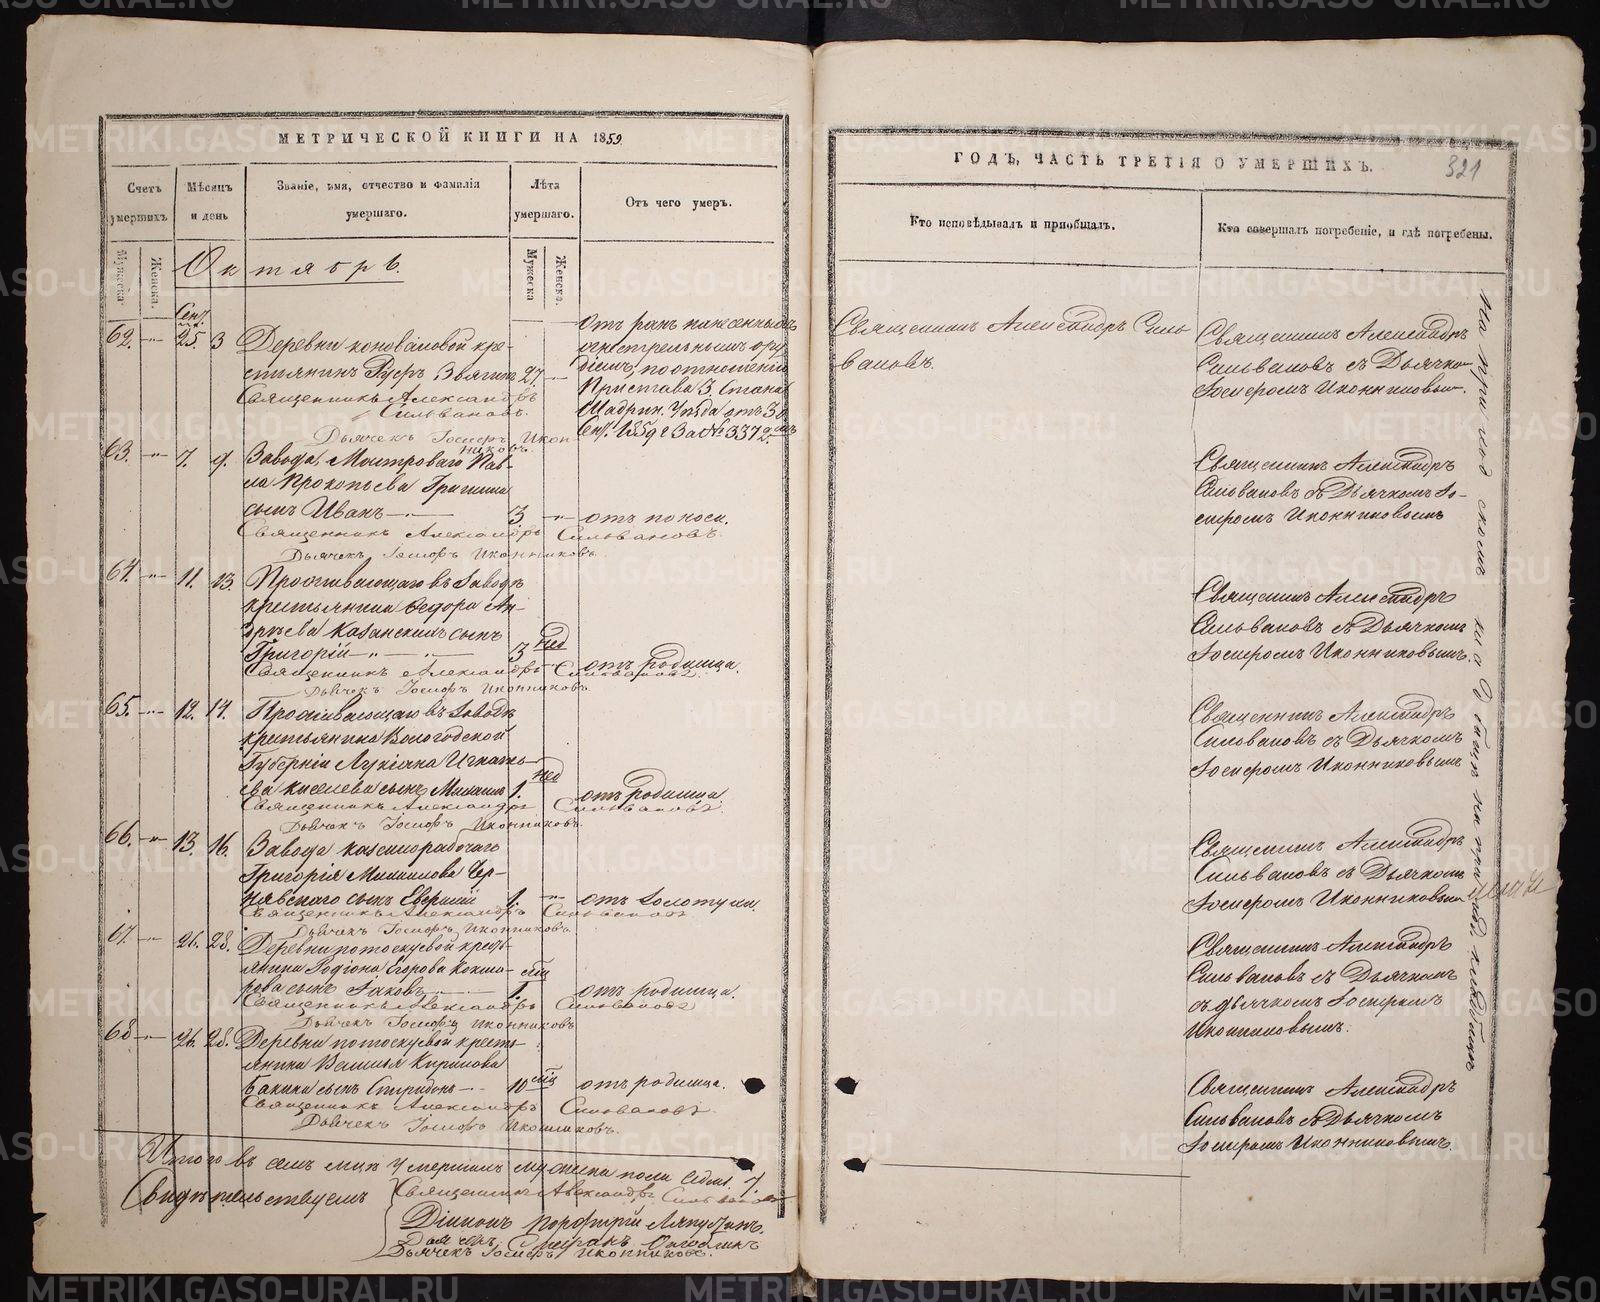 МЕТРИЧЕСКОЙ КНИГИ НА 1859
Счетъ умершихъ
Мѣсяцъ и день
Званіе, имя, отчество и фамилія умершаго.
Лѣта умершаго.
Отъ чего умеръ.
Мужеска
Женска.
Мужеска
Женска.
Октябрь.
Сент.
62. — 25. 3
Деревни Коноваловой кре-
стьянинъ
Звягинъ 27. —
отъ ранъ нанесенныхъ
огнестрельнымъ ору
діемъ, по отношенію
Пристава 3. Стана
Шадрин. Уѣзда отъ 30
Сент. 1859 г За № 3372
Священникъ Александръ
Сильвановъ.
Дьячекъ Іосифъ Икон
никовъ.
63. — 7. 9.
Завода, Мастероваго Пав-
ла Прокопьева
сынъ Иванъ — 3 — отъ поноса.
Священникъ Александръ Сильвановъ.
Дьячекъ Іосифъ Иконниковъ.
64. — 11. 13.
Проживающаго въ Заводѣ
крестьянина Ѳедора Ан-
дреева Казанскихъ сынъ
Григорій — 3 нед отъ родимца.
Священникъ Александръ Сильвановъ.
Дьячекъ Іосифъ Иконниковъ.
65. — 12. 14.
Проживающаго въ Заводѣ
крестьянина Вологодской
Губерніи Лукіана Игнатье-
ва Киселева сынъ Михаилъ 1. нед отъ родимца.
Священникъ Александръ Сильвановъ.
Дьячекъ Іосифъ Иконниковъ.
66. — 13. 16.
Завода
Григорія Михаилова Чер-
нявскаго сынъ Евгеній 1. — отъ золотухи.
Священникъ Александръ Сильвановъ
Дьячекъ Іосифъ Иконниковъ.
67. — 26. 28.
Деревни Потоскуевой кресть-
янина Родіона Егорова Кокша-
рова сынъ Іаковъ — 1. мѣц отъ родимца.
Священникъ Александръ Сильвановъ
Дьячекъ Іосифъ Иконниковъ
68 — 26. 28.
Деревни Потоскуевой кресть-
янина Василья Кирилова
Бакина сынъ Спиридонъ — 10 мѣц отъ родимца.
Священникъ Александръ Сильвановъ.
Дьячекъ Іосифъ Иконниковъ.
Итого въ семъ мцѣ умершихъ мужеска пола седмь 7.
Свидѣтельствуемъ
Священникъ Александръ Сильвановъ
Діаконъ Порфирій
Дьячекъ Іосифъ Иконниковъ.
ГОДЪ, ЧАСТЬ ТРЕТІЯ О УМЕРШИХЪ.
321
Кто исповѣдывалъ и приобщалъ.
Кто совершалъ погребеніе, и гдѣ погребены.
Священникъ Александръ Силь
вановъ.
Священникъ Александръ
Сильвановъ съ Дьячкомъ
Іосифомъ Иконниковым.
Священникъ Александръ
Сильвановъ съ Дьячкомъ Іо-
сифомъ Иконниковымъ
Священникъ Александръ
Сильвановъ съ Дьячкомъ
Іосифомъ Иконниковымъ.
Священникъ Александръ
Сильвановъ съ Дьячкомъ
Іосифомъ Иконниковымъ
Священникъ Александръ
Сильвановъ съ Дьячкомъ
Іосифомъ Иконниковым
Священникъ Александръ
Сильвановъ съ Дьячкомъ
съ дьячкомъ Іосифомъ
Иконниковымъ.
Священникъ Александръ
Сильвановъ съ Дьячкомъ
Іосифомъ Иконниковымъ.
На приходскомъ
кладбищѣ
METRIKI.GASO-URAL.RU